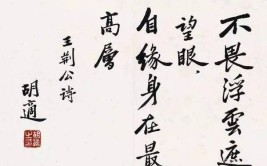 不畏浮雲遮
望眼，
自緣身在最
高層
王荆公詩
胡適